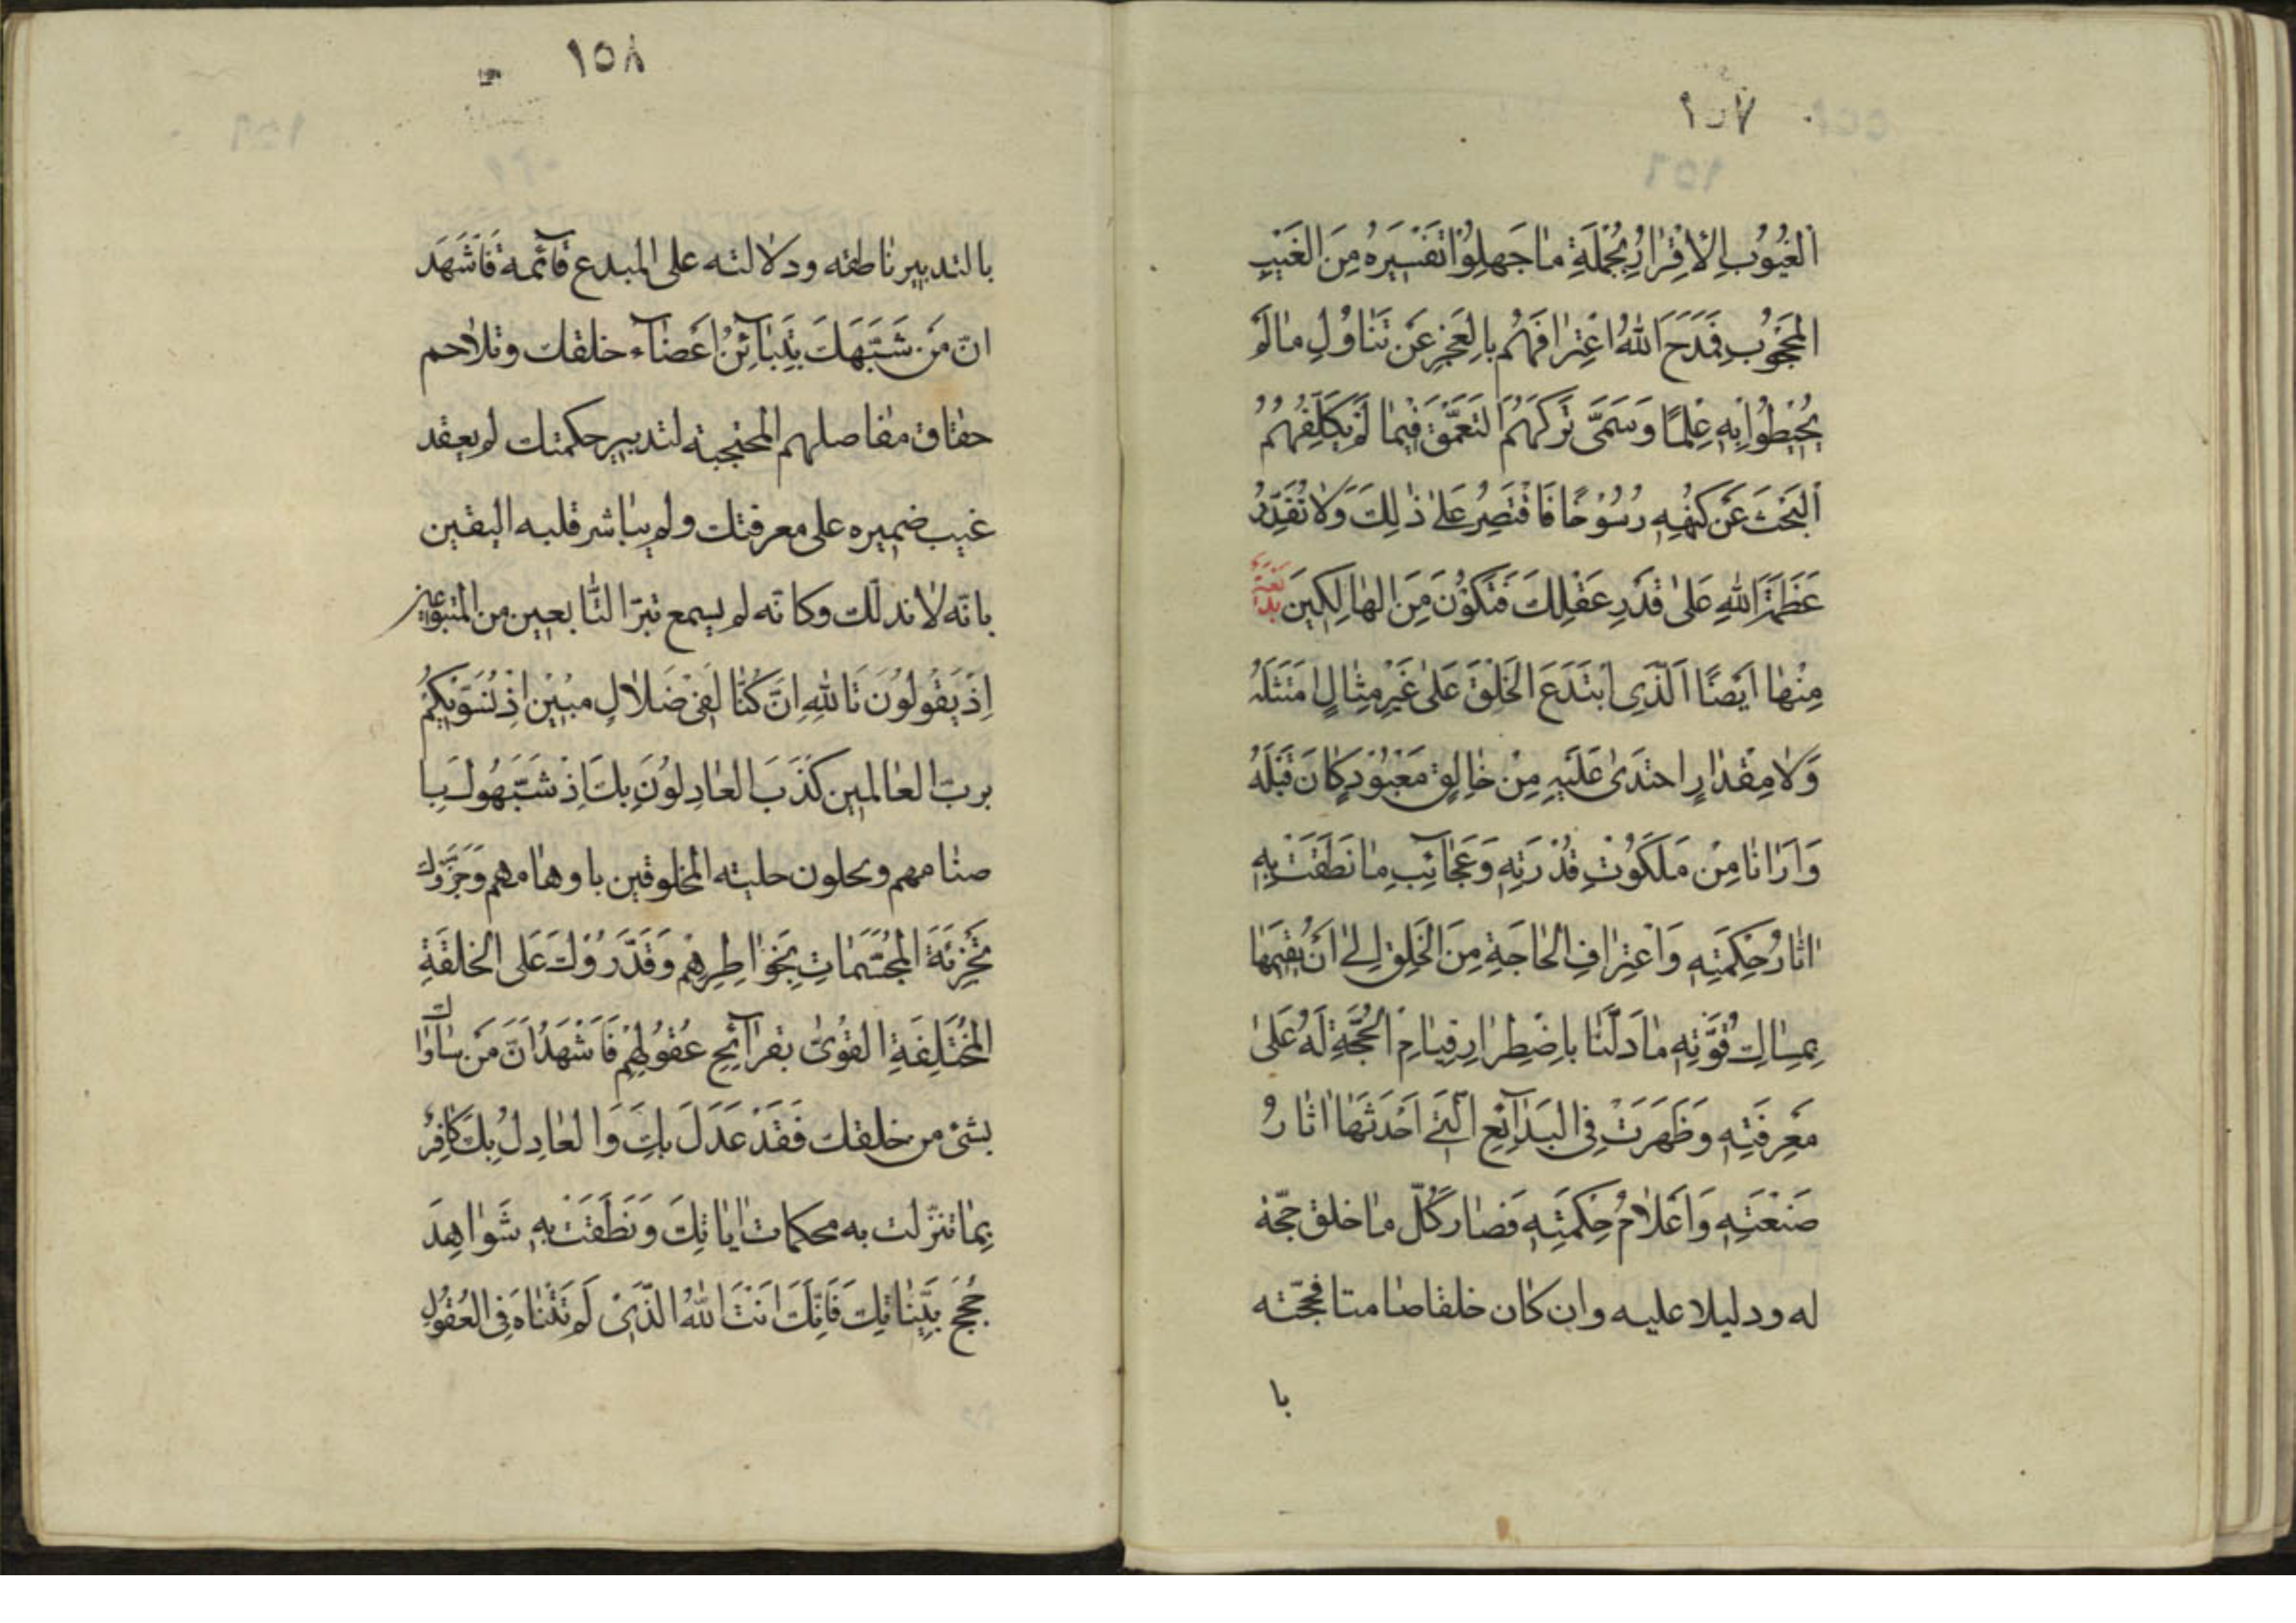 ١٥٧
الغُيُوبِ الاِقْرٰارُ بِجُمْلَةِ مٰا جَهِلُوْا تَفْسيَرَهُ مِنَ الغَيْبِ
المَحْجُوْبِ فَمَدَحَ اللّٰهُ اعْتِرٰافَهُمْ بِالعَجْزِ عَنْ تَنٰاوُلِ مٰا لَمْ
يُحيْطُوْا بِهِ عِلْمًا وَسَمَّىٰ تَرْكَهُمُ التَّعَمُّقَ فيْمٰا لَمْ يُكَلِّفْهُمُ
البَحْثَ عَنْ كُنْهِهِ رُسُوْخًا فَاقْتَصِرْ عَلىٰ ذٰلِكَ وَلاٰ تُقَدِّرْ
عَظَمَةَ اللّٰهِ عَلىٰ قَدْرِ عَقْلِكَ فَتَكُوْنَ مِنَ الهٰالِكِينَ
مِنْهٰا اَيْضًا اَلَّذِى ابْتَدَعَ الخَلْقَ عَلىٰ غَيْرِ مِثٰالٍ امْتَثَلَهُ
وَلاٰ مِقْدٰارٍ احتَذىٰ عَلَيْهِ مِنْ خٰالِقٍ مَعْبُوْدٍ كٰانَ قَبْلَهُ
وَاَرٰانٰا مِنْ مَلَكُوْتِ قُدْرَتِهِ وَعَجٰآئِبِ مٰا نَطَقَتْ بِهِ
اٰثٰارُ حِكْمَتِهِ وَاعْتِرٰافِ الحٰاجَةِ مِنَ الخَلْقِ اِلىٰ اَنْ يُقيمَهٰا
بِمِسٰاكِ قُوَّتِهِ مٰا دَلَّنٰا بِاضْطِرٰارِ قِيٰامِ الحُجَّةِ لَهُ عَلىٰ
مَعْرِفَتِهِ وَظَهَرَتْ فِى البَدٰآئِعِ الَّتى اَحْدَثَهٰا اٰثٰارُ
صَنْعَتِهِ وَاَعْلاٰمُ حِكْمَتِهِ فَصٰارَ كُلّ مٰا خلق حجّة
له ودليلا عليه وان كٰان خلقا صٰامتا فحجّته
با
١٥٨
بالتدبير ناطقه ودلالته على المبدع قآئمة فَاَشْهَدُ
انّ مَنْ شَبَّهَكَ بِتَبٰايُنِ اَعْضٰآءِ خلقك وتلاٰحم
حقاق مفاصلهم المحتجبة لتدبير حكمتك لم يعقد
غيب ضميره على معرفتك ولم يباشر قلبه اليقين
بانّه لاٰ ند لك وكانّه لم يسمع تبرّا التّابعين من المتبوعين
اِذْ يَقُولُوْنَ تَاللّٰهِ اِنْ كُنّٰا لَفى ضَلاٰلٍ مبُيْنٍ اِذْ نُسَوّيكُمْ
بربّ العٰالمين كَذَبَ العٰادِلُوْنَ بِكَ اِذْ شَبَّهُوكَ بِا
صنٰامهم ونحلوك حلية المخلوقين باوهٰامهم وَجَزَّؤُكَ
تَجْزِئَةَ المُجَسَّمٰاتِ بِخَوٰاطِرِهِمْ وَقَدَّرُوْكَ عَلَى الخلقَةِ
المُخْتَلِفَةِ القُوىٰ بقَرٰآئِحِ عُقُولِهِمْ فَاَشْهَدُ اَنَّ مَنْ سٰاوٰاك
بشئ من خلقك فَقَدْ عَدَلَ بِكَ وَالعٰادِلُ بِكَ كٰافِرٌ
بِمٰا تنزّلت به محكمات اٰيٰاتِكَ وَنَطَقَتْ بِهِ شَوٰاهِدَ
حُجَجِ بَيِّنٰاتِكَ فَاِنَّكَ اَنْتَ اللّٰهُ الَّذى لَمْ تَتَنٰاهَ فِى العُقُوْلِ